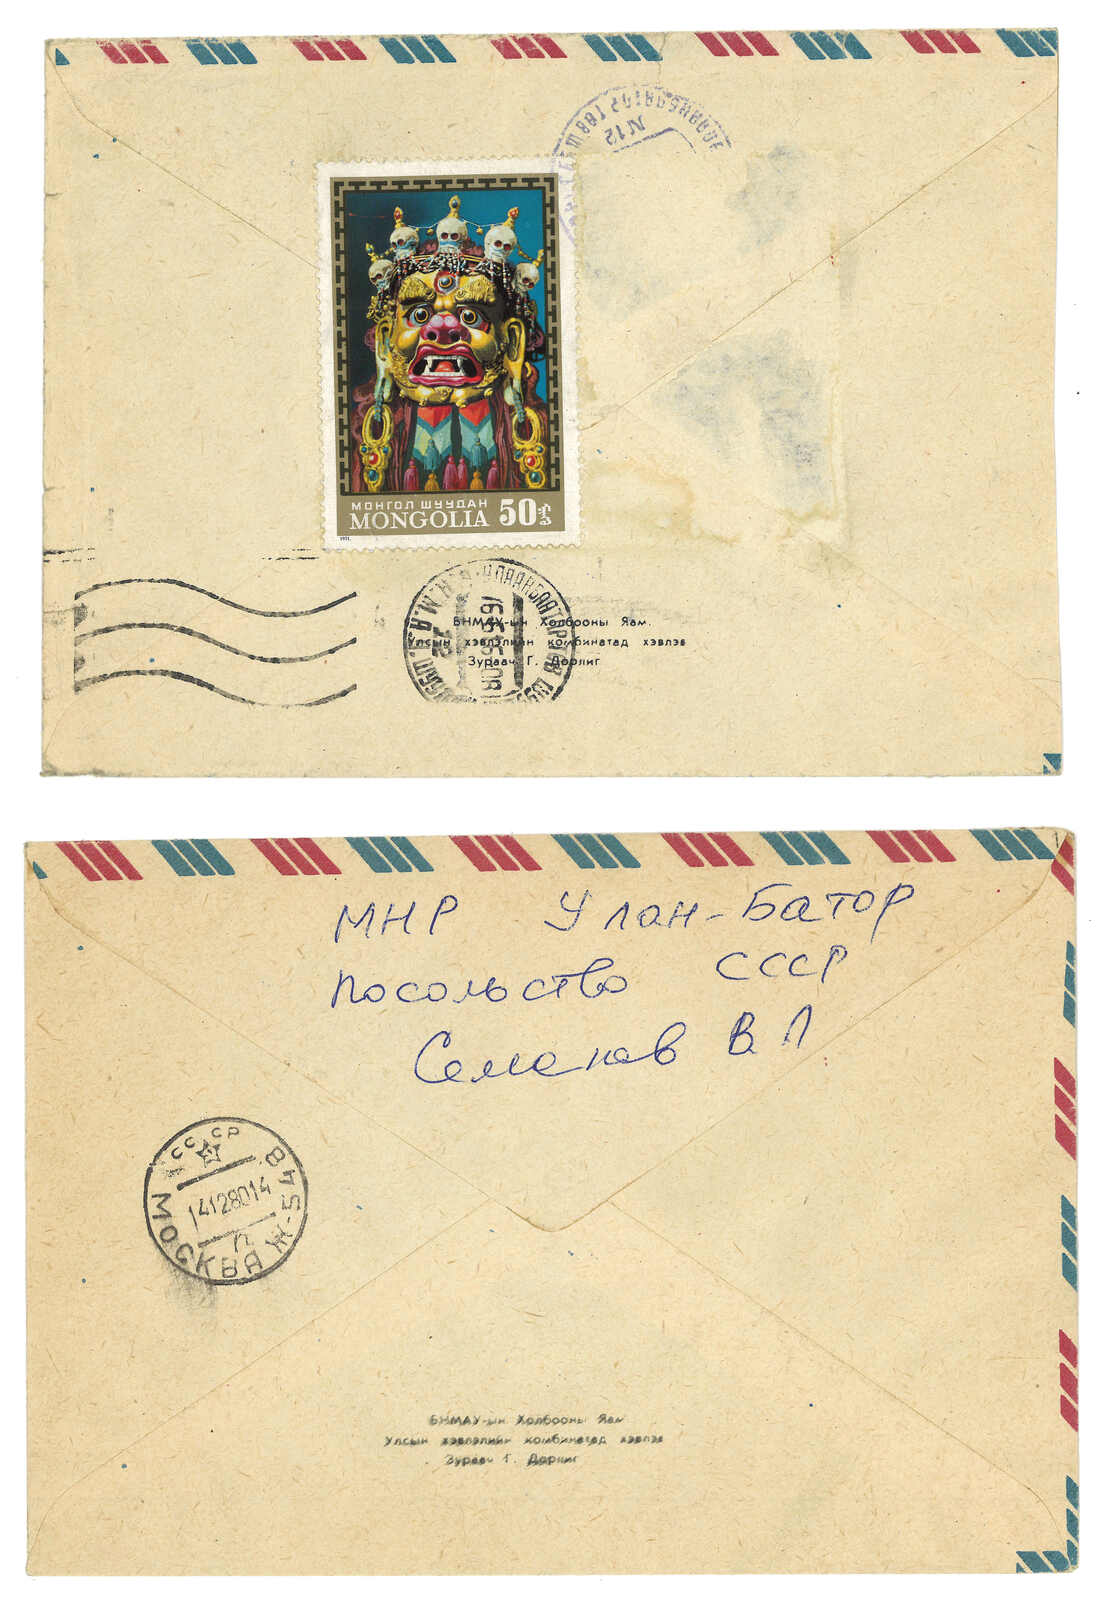 N12
МОНГОЛ ШУУДАН
MONGOLIA 50
1971.
УЛААНБААТАР
БНМАУ-ын Холбооны Яам.
Улсын хэвлэлийн комбинатад хэвлэв
Зураач Г. Дорлиг
МНР Улан-Батор
посольство СССР
Семенов В Л
СССР
МОСКВА Ж-548
БНМАУ-ын Холбооны Яам
Улсын хэвлэлийн комбинатад хэвлэв
Зураач Г. Дорлиг